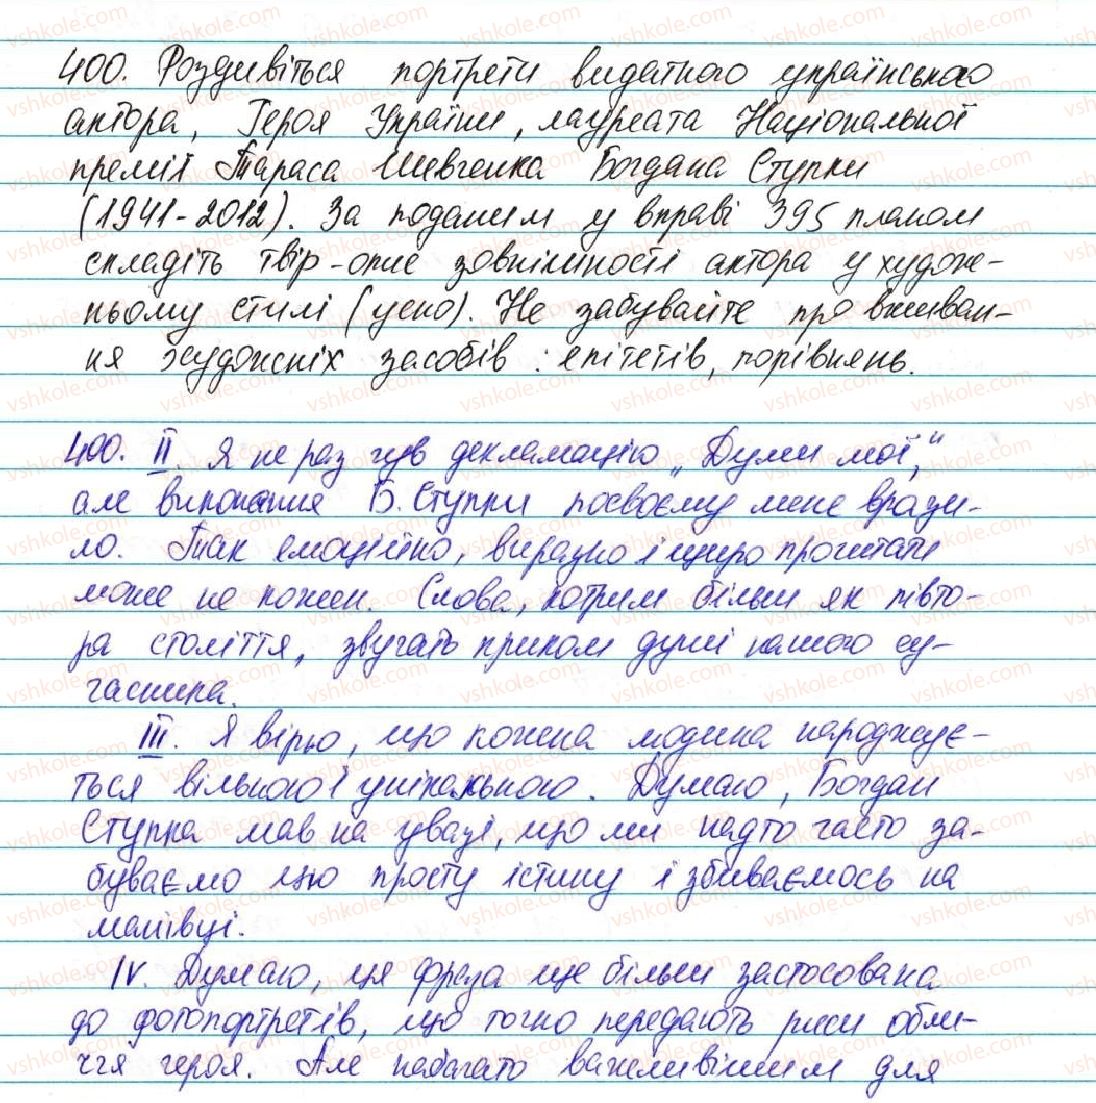 400. Роздивіться портрети видатного українського
актора, Героя України, лауреата Національної
премії Тараса Шевченка Богдана Ступки
(1941-2012). За поданим у вправі 395 планом
складіть твір-опис зовнішності актора у худож-
ньому стилі (усно). Не забувайте про вживан-
ня художніх засобів: епітетів, порівнянь.
400. II. Я не раз чув декламацію „Думи мої,"
але виконання Б. Ступки посвоєму мене врази-
ло. Так емоційно, виразно і щиро прочитати
може не кожен. Слова, котрим більш як півто-
ра століття, звучать криком душі нашого су-
часника.
III. Я вірю, що кожна людина народжує-
ться вільною і унікальною. Думаю, Богдан
Ступка мав на увазі, що ми надто часто за-
буваємо цю просту істину і збиваємось на
манівці.
IV. Думаю, ця фраза ще більш застосована
до фотопортретів, що точно передають риси обли-
ччя героя. Але набагато важливішим для
vshkole.com